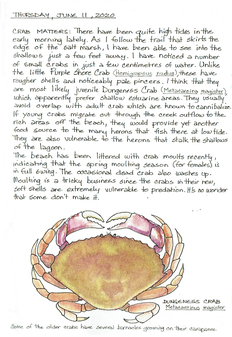 THURSDAY, JUNE 11, 2020
CRAB MATTERS: There have been quite high tides in the
early morning lately. As I follow the trail that skirts the
edge of the salt marsh, I have been able to see into the
shallows just a few feet away. I have noticed a number
of small crabs in just a few centimetres of water. Unlike
the little Purple Shore Crab (Hemigrapsus nudus), these have
rougher shells and noticeably pale pincers. I think that they
are most likely juvenile Dungeness Crab (Metacarcinus magister),
which apparently prefer shallow estuarine areas. They usually
avoid overlap with adult crab which are known to cannibalize.
If young crabs migrate out through the creek outflow to the
rich areas off the beach, they would provide yet another
food source to the many herons that fish there at low tide.
They are also vulnerable to the herons that stalk the shallows
of the lagoon.
The beach has been littered with crab moults recently,
indicating that the spring moulting season (for females) is
in full swing. The occasional dead crab also washes up.
Moulting is a tricky business since the crabs in their new,
soft shells are extremely vulnerable to predation. It's no wonder
that some don't make it.
DUNGENESS CRAB
Metacarcinus magister
Some of the older crabs have several barnacles growing on their carapace.